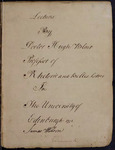 Lectures
By
Doctor Hugh Blair
Professor of
Rhetoric and Belles Lettres
In
The University
Edinburgh
James